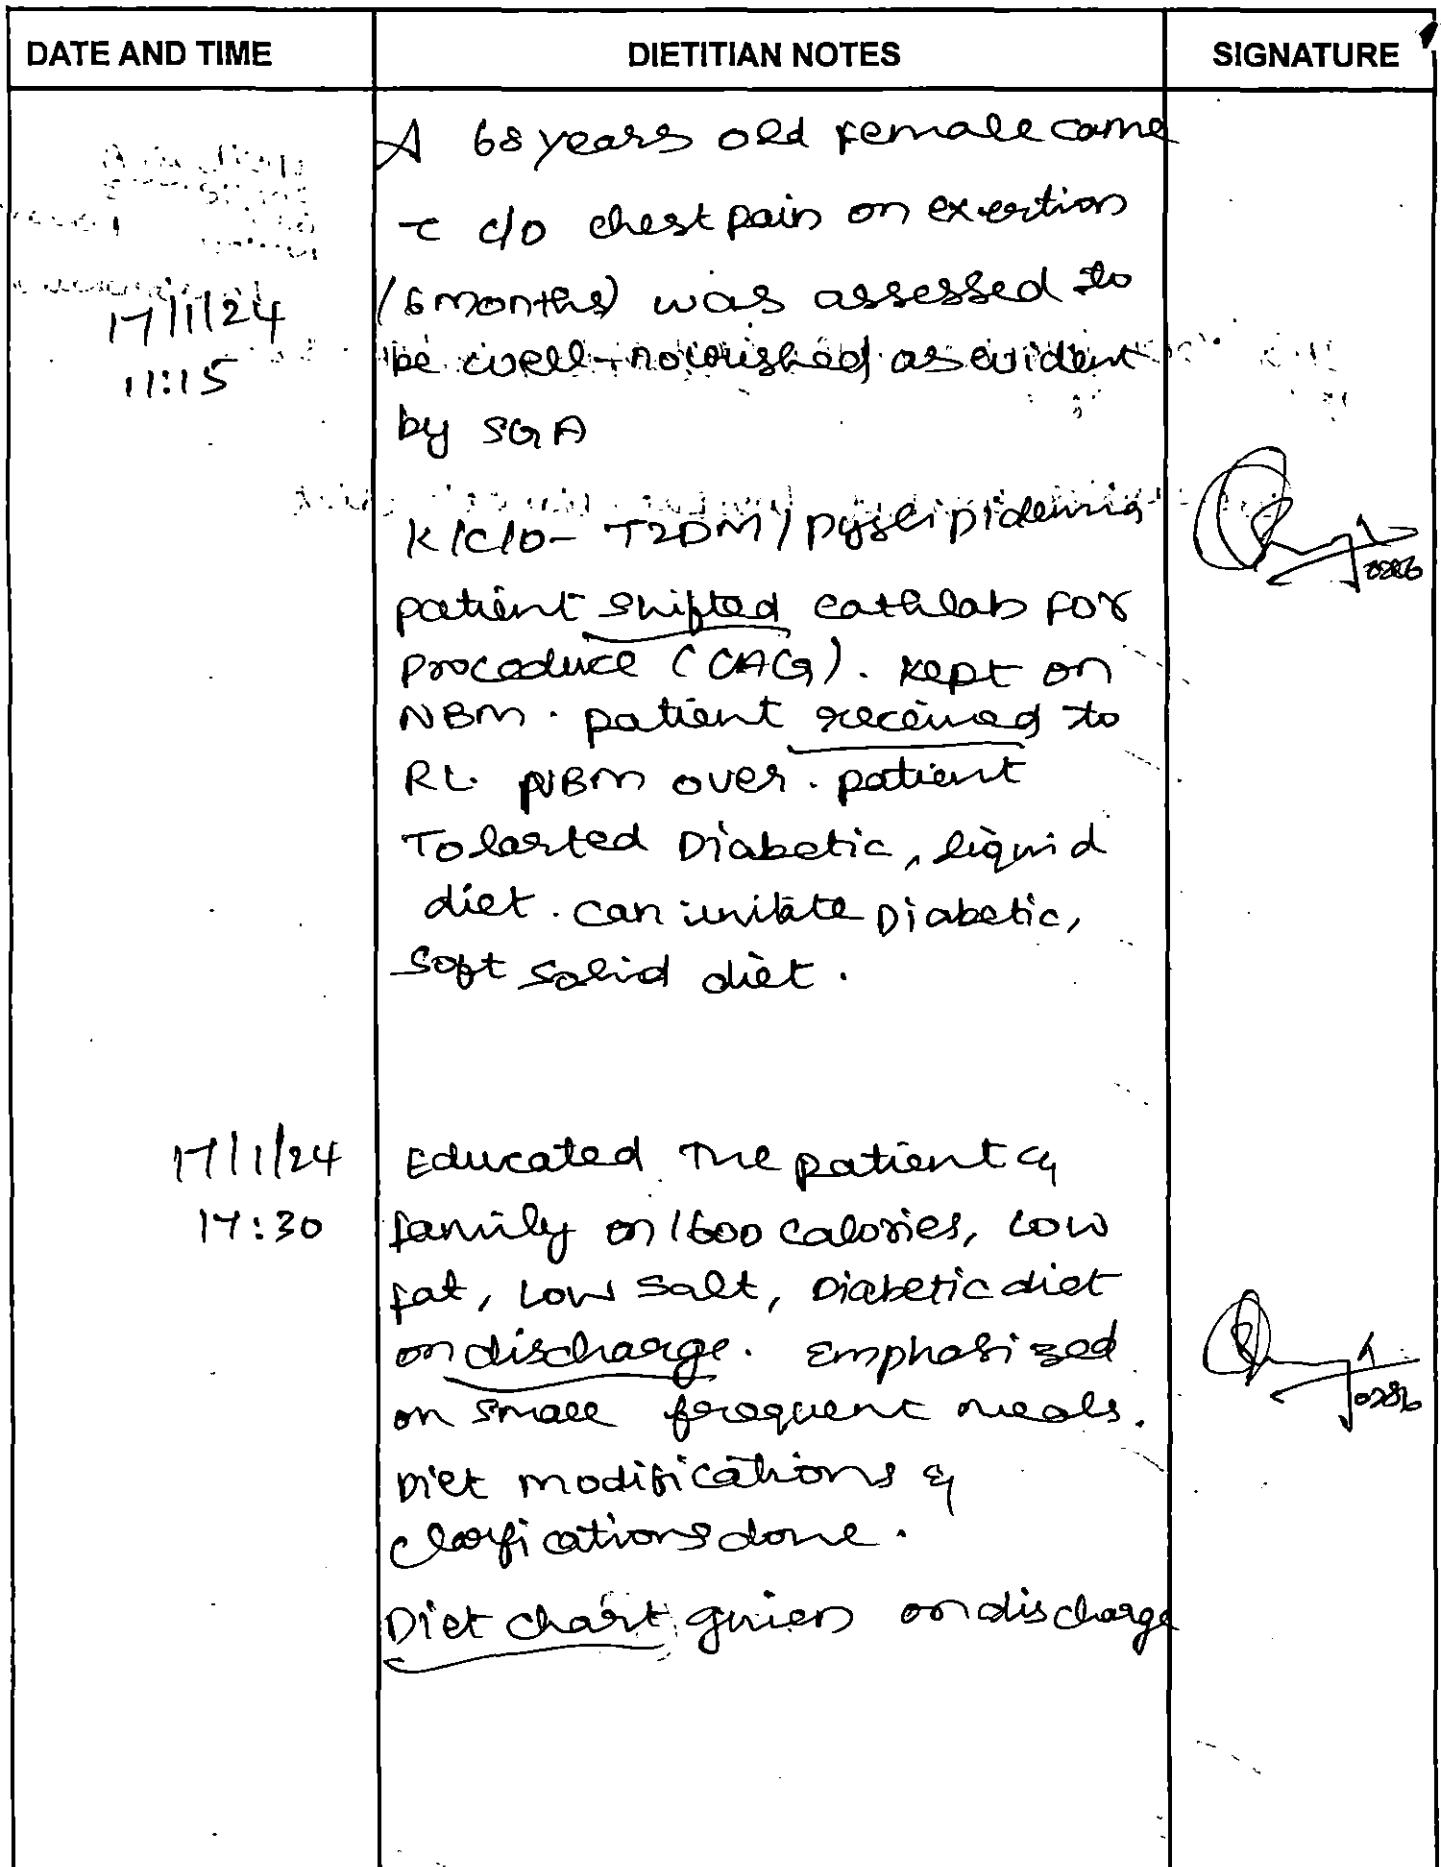 DATE AND TIME DIETITIAN NOTES SIGNATURE
A 68 years old female came
c c/o chest pain on exertion
17/1/24 (6 months) was assessed to
11:15 be well-nourished as evident
by SGA
K/C/O- T2DM / Dyslipidemia
patient shifted cathlab for
Proceduce (CAG). Kept on
NBM. patient received to
RL. NBM over. patient
Tolarted Diabetic, liquid
diet. can initate Diabetic,
Soft solid diet.
17/1/24 Educated The patient &
17:30 family on 1600 calories, Low
fat, Low Salt, Diabetic diet
on discharge. Emphasized
on Small frequent meals. 0286
Diet modifications &
clarfications done.
Diet chart given on discharge